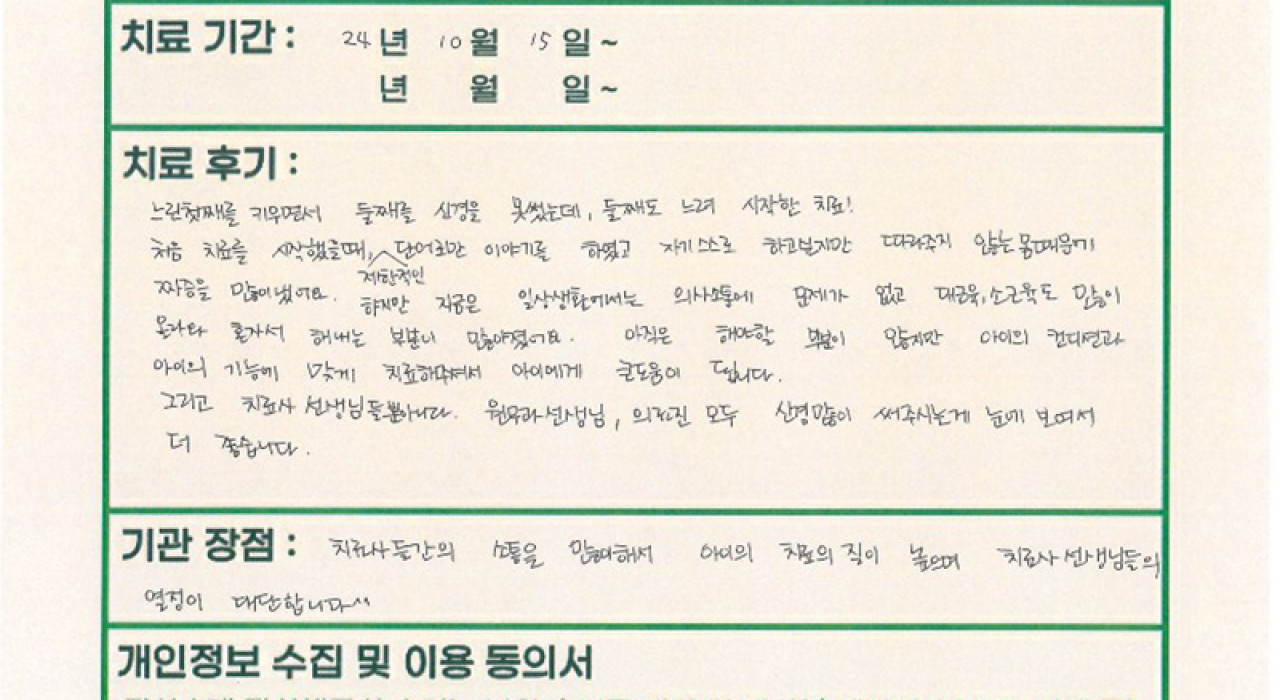 치료 기간 : 24 년 10 월 15 일 ~
년 월 일 ~
치료 후기 :
느린첫째를 키우면서 둘째를 신경을 못썼는데, 둘째도 느려 시작한 치료!
처음 치료를 시작했을때, 단어로만 이야기를 하였고 자기 스스로 하고싶지만 따라주지 않는 몸때문에
제한적인
짜증을 많이냈어요. 하지만 지금은 일상생활에서는 의사소통에 문제가 없고 대근육,소근육도 많이
올라와 혼자서 해내는 부분이 많아졌어요. 아직은 해야할 부분이 많지만 아이의 컨디션과
아이의 기능에 맞게 치료해주셔서 아이에게 큰도움이 됩니다.
그리고 치료사 선생님들뿐아니라. 원무과선생님, 의료진 모두 신경많이 써주시는게 눈에 보여서
더 좋습니다.
기관 장점 : 치료사들간의 소통을 많이해서 아이의 치료의 질이 높으며 치료사 선생님들의
열정이 대단합니다^^
개인정보 수집 및 이용 동의서